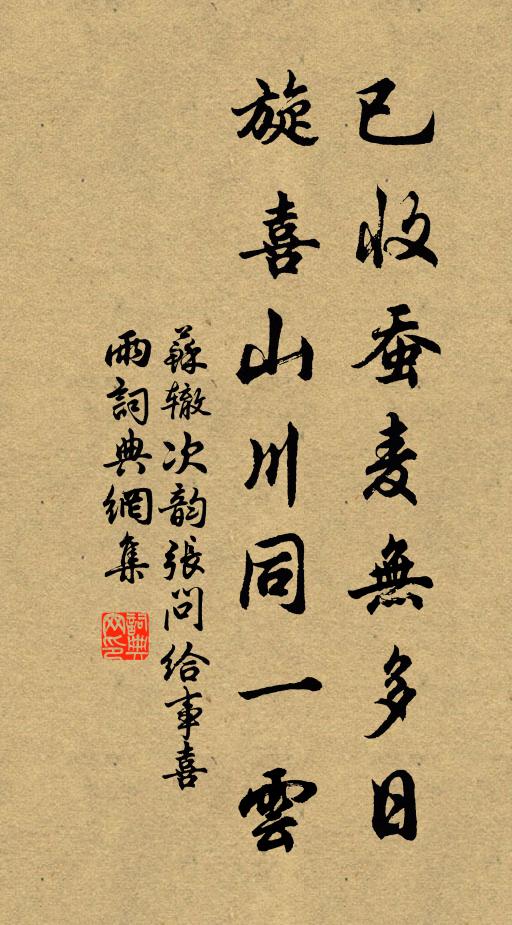 已收蚕麦無多日
旋喜山川同一雲
蘇辙次韵張问给事喜
雨詞典網集
詞典
网印